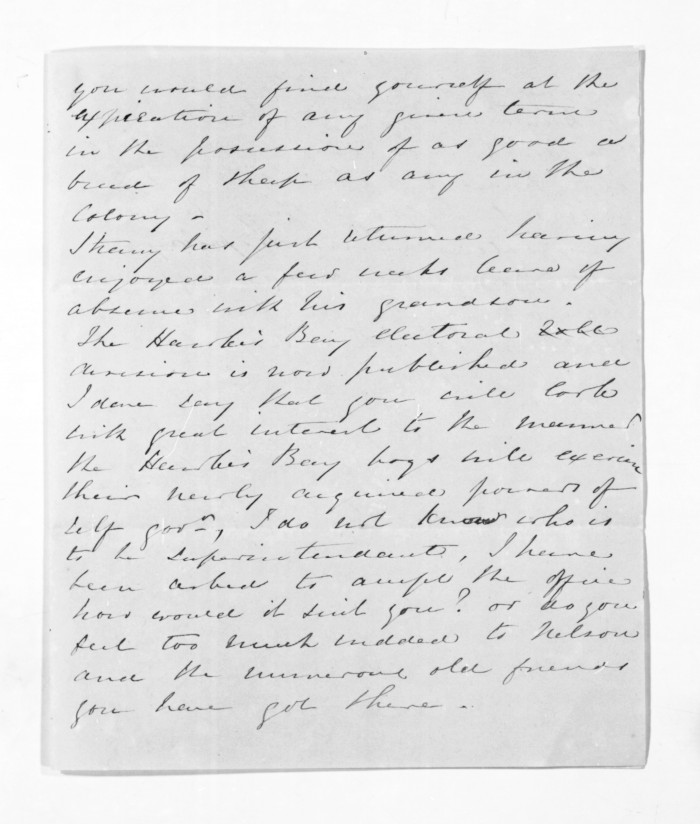 you would find yourself at the
expiration of any given term
in the possession of as good a
breed of sheep as any in the
Colony -
has just returned having
enjoyed a few weeks leave of
absence with his grandson.
The Hawke's Bay electoral
division is now published and
I dare say that you will look
with great interest to the manner
the Hawke's Bay boys will exercise
their newly acquired powers of
self govt, I do not know who is
to be Superintendant, I have
been asked to accept the office
how would it suit you? or do you
feel too much wedded to Nelson
and the numerous old friends
you have got there -